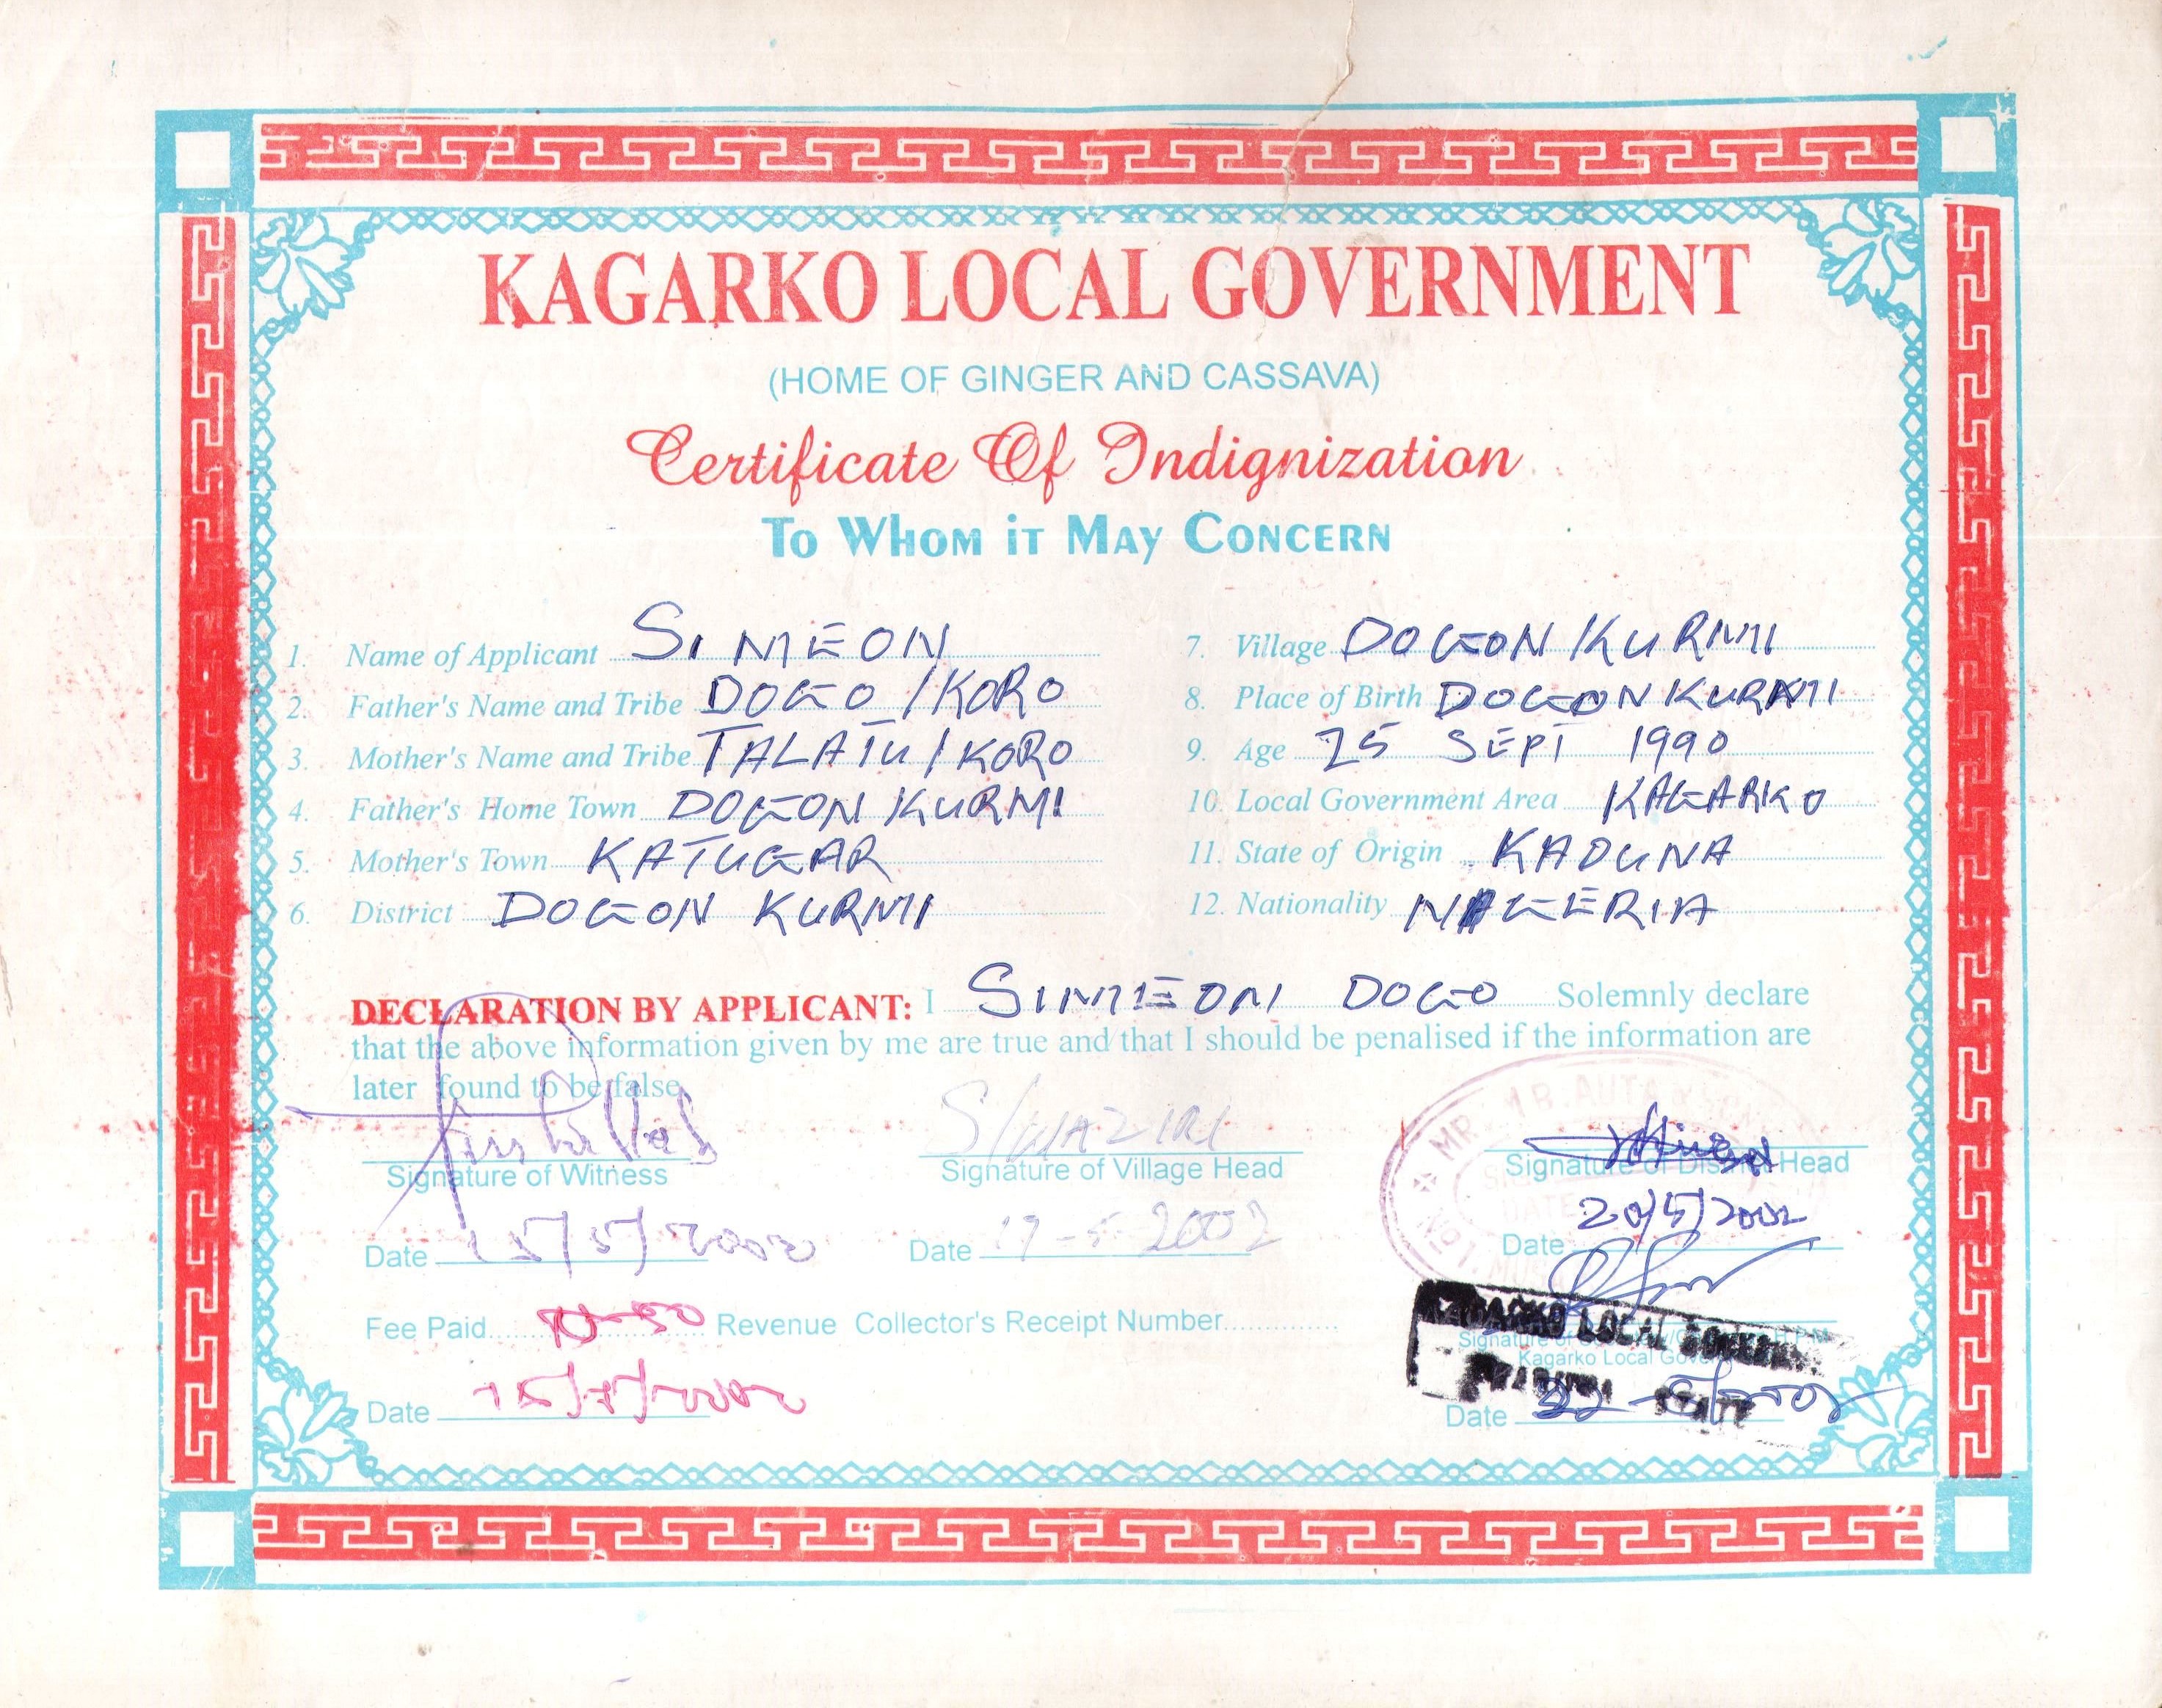 KAGARKO LOCAL GOVERNMENT
(HOME OF GINGER AND CASSAVA)
Certificate Of Indignization
To Whom iT May Concern
1. Name of Applicant SIMEON
2. Father's Name and Tribe DOGO / KORO
3. Mother's Name and Tribe TALATU / KORO
4. Father's Home Town DOGON KURMI
5. Mother's Town KATUGAR
6. District DOGON KURMI
7. Village DOGON KURMI
8. Place of Birth DOGON KURMI
9. Age 25 SEPT 1990
10. Local Government Area KAGARKO
11. State of Origin KADUNA
12. Nationality NIGERIA
DECLARATION BY APPLICANT: I SIMEON DOGO Solemnly declare
that the above information given by me are true and that I should be penalised if the information are
later found to be false
Signature of Witness
Date 15/5/2002
S/WAZIRI
Signature of Village Head
Date 17-5-2002
Signature of District Head
20/5/2002
Date
Fee Paid Revenue Collector's Receipt Number
Date
KAGARKO LOCAL
Signature of
Kagarko Local
STATE
Date